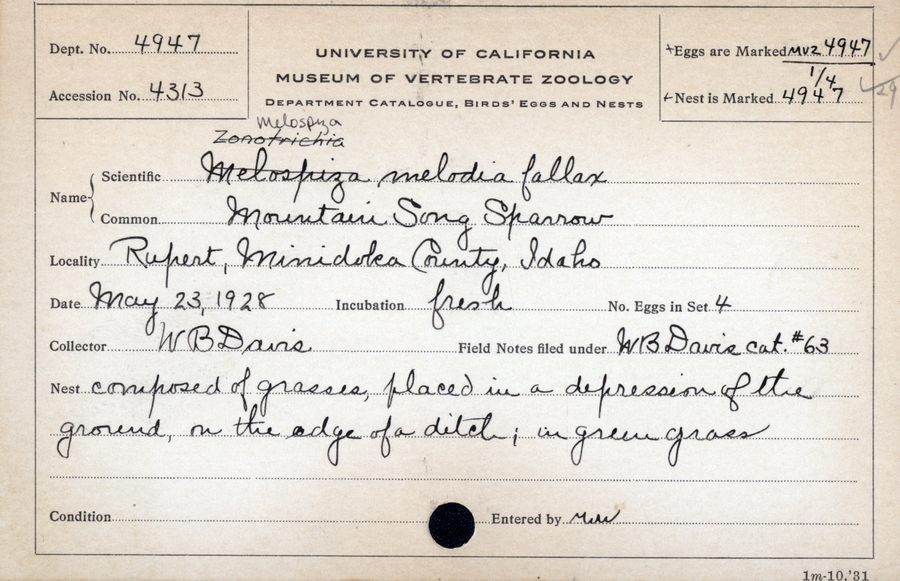 Dept. No. 4947
Accession No. 4313
UNIVERSITY OF CALIFORNIA
MUSEUM OF VERTEBRATE ZOOLOGY
DEPARTMENT CATALOGUE, BIRDS' EGGS AND NESTS
+Eggs are Marked MVZ 4947
1/4
+Nest is Marked 4947
Melospiza
Zonotrichia
Name
Scientific Melospiza melodia fallax
Common Mountain Song Sparrow
Locality Rupert, Minidoka County, Idaho
Date May 23, 1928 Incubation fresh No. Eggs in Set 4
Collector WB Davis Field Notes filed under WB Davis cat. #63
Nest composed of grasses, placed in a depression of the
ground, on the edge of a ditch; in green grass
Condition Entered by
1m-10,'31